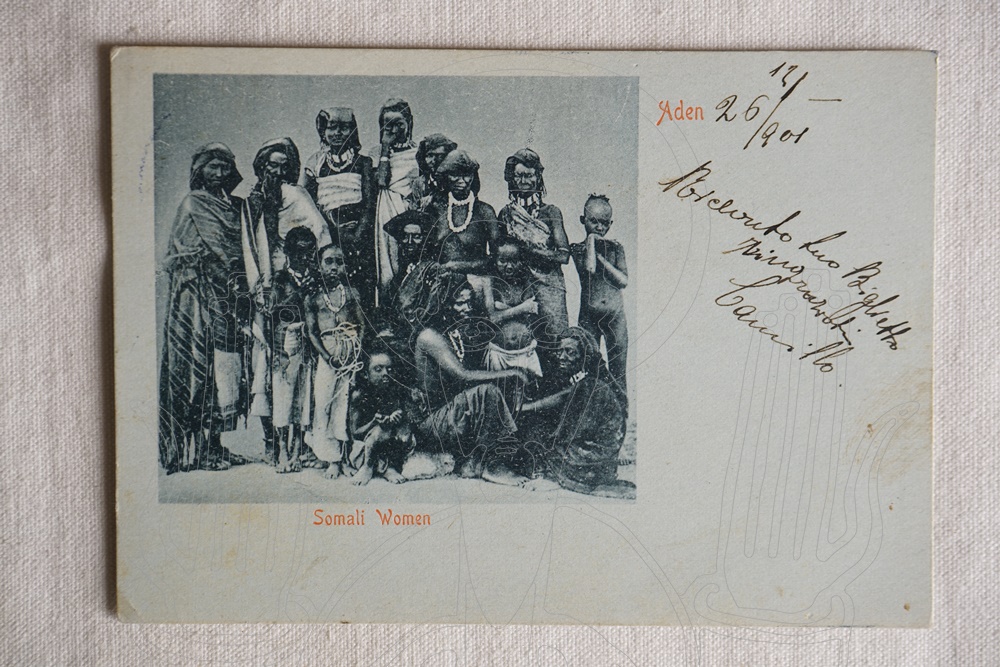 Aden
26/12/901
Ricevuto suo Biglietto
Ringraziati
Camillo
Somali Women